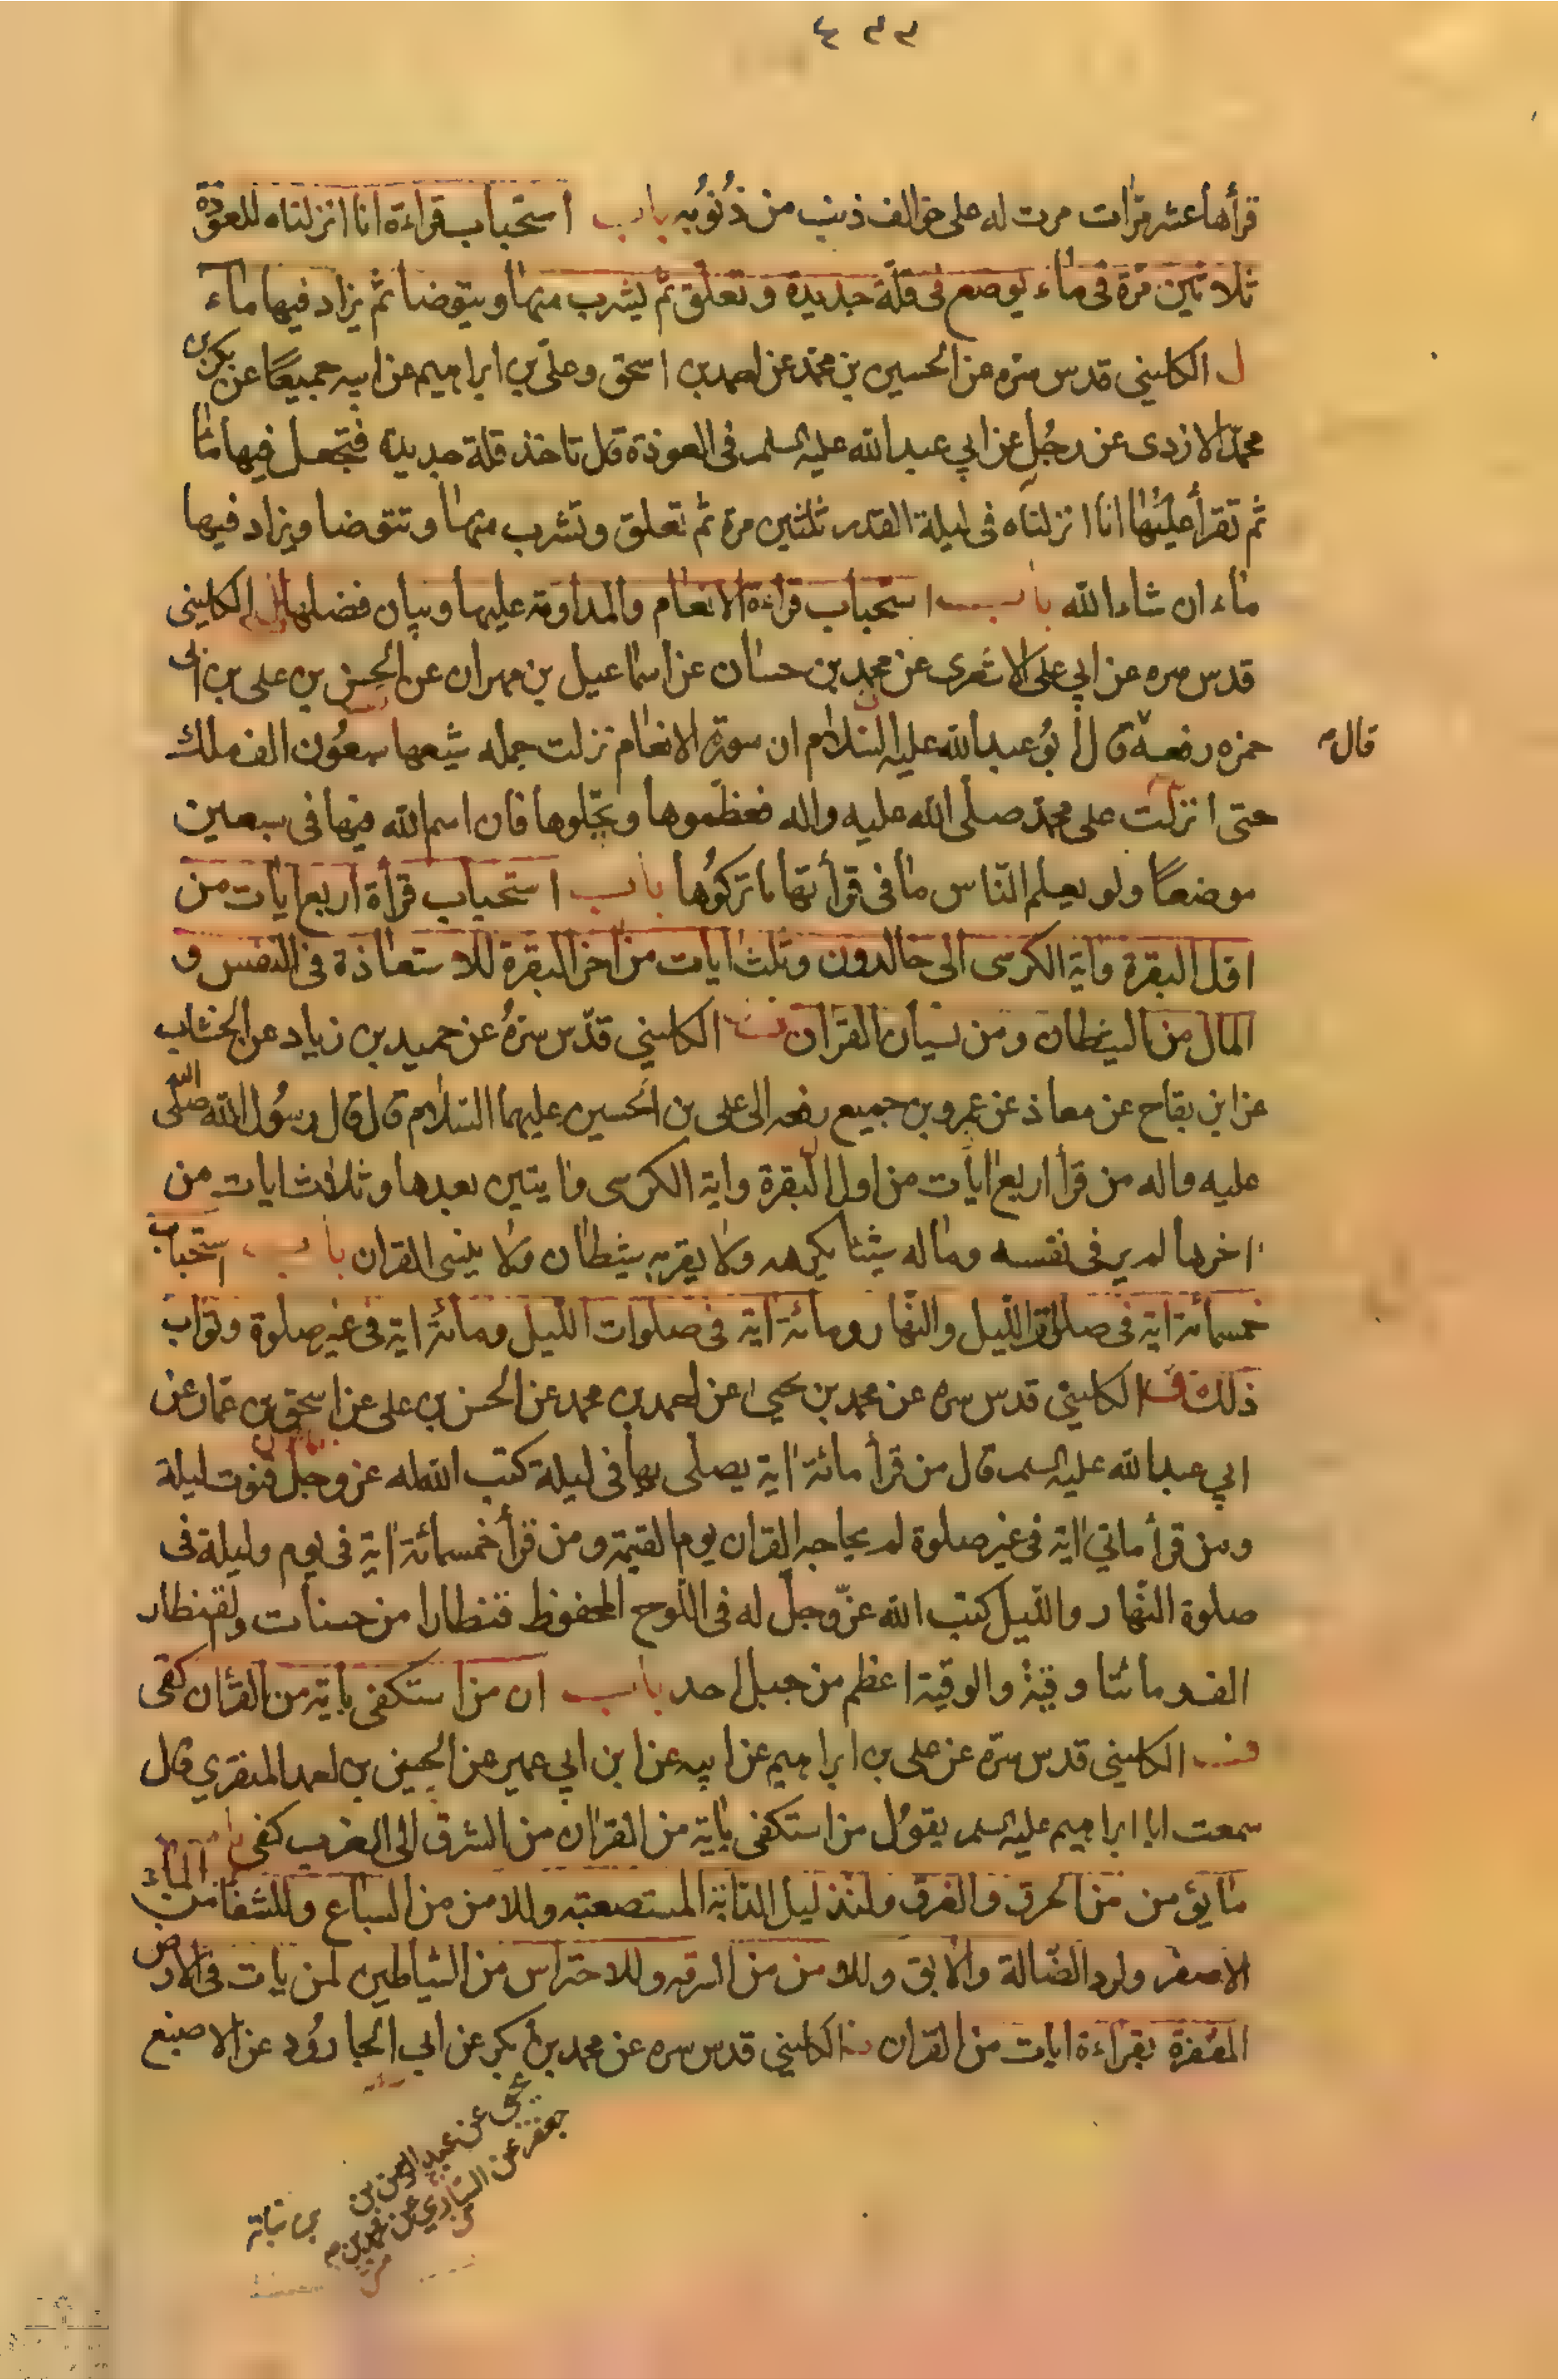 قرأها عشر مرّات مرت له على نحو الف ذنب من ذُنُوبُه باب استحباب قراءة انا انزلناه للعوذة
ثلاثين مرّة فى ماء يوضع فى قلّة جديدة و تعلّق ثمّ يشرب منها و يتوضا ثم يزاد فيها ماء
الكلينى قدس سّره عن الحسين بن محمّد عن احمد بن اسحق و علىّ بن ابراهيم عن ابيه جميعًا عن بكر بن
محمّد الازدى عن رجُل عن ابي عبد الله عليه السلم فى العوذة قال تاخذ قلة جديدة فتجعل فيها ماءً
ثم تقرأ عليها انا انزلناه فى ليلة القدر ثلثين مرة ثم تعلق و تشرب منها و تتوضا و يزاد فيها
ماء ان شاء الله باب استحباب قراءة الانعام والمداومة عليها و بيان فضلها الكلينى
قدس سره عن ابي على الاشعرى عن محمد بن حسان عن اسماعيل بن مهران عن الحسن بن على بن ابى
حمزه رفعه قال ابُو عبد الله عليه السّلام ان سورة الانعام نزلت جمله شيعها سبعُون الف ملك
قال
حتى انزلت على محمّد صلّى الله عليه واله فعظّموها و بجّلوها فان اسم الله فيها فى سبعين
موضعًا ولو يعلم النّاس ما فى قرأتها ما تركوُها باب استحباب قرأة اربع ايات من
اوّل البقرة واية الكرسى الى خالدون و ثلث ايات من اخر البقرة للاستعاذة فى النفس و
المال من الشيطان ومن نسيان القران الكلينى قدّس سرهُ عن حميد بن زياد عن الخشاب
عن ابن بقاح عن معاذ عن عمرو بن جميع رفعه الى على بن الحسين عليهما السّلام قال قال رسُول الله صلى الله
عليه واله من قرأ اربع ايات من اول البقرة واية الكرسى وايتين بعدها و ثلاث ايات من
اخرها لم ير فى نفسه وماله شيئا يكرهه ولا يقربه شيطان ولا ينسى القران باب استحباب
خمسمائة اية فى صلوة الليل والنّهار ومائة اية فى صلوات الليل ومائة اية فى غير صلوة وثواب
ذلك الكلينى قدس سره عن محمد بن يحيى عن احمد بن محمد عن الحسن بن على عن اسحق بن عمّار عن
ابي عبد الله عليه السلم قال من قرأ مائة اية يصلى بها فى ليلة كتب الله له عز وجل قنوت ليلة
ومن قرأ ماتي اية فى غير صلوة لم يحاجه القران يوم القيمة ومن قرأ خمسمائة اية فى يوم وليلة فى
صلوة النّهار والليل كتب الله عزّ وجلّ له فى اللّوح المحفوظ قنطارا من حسنات والقنطار
الف ومائتا وقيّة والوقيّة اعظم من جبل احد باب ان من استكفى باية من القرأن كفى
الكلينى قدس سرّه عن على بن ابراهيم عن ابيه عن ابن ابي عمير عن الحسين بن احمد المنقري قال
سمعت ابا ابراهيم عليه السلم يقوُل من استكفى باية من القرأن من الشرق الى الغرب كفى باب
ما يؤمن من الحرق والغرق ولتذليل الدّابّة المستصعبه وللامن من السباع وللشفا من الماء
الاصفر ولرد الضّالة والابق وللامن من السرقه وللاحتراس من الشّياطين لمن بات فى الارض
المقفرة بقراءة ايات من القران الكلينى قدس سره عن محمد بن بكر عن ابي الجارُود عن الاصبغ
بن نباتة
يحيى عن عبد الله بن
جعفر عن السيّاري عن محمد بن